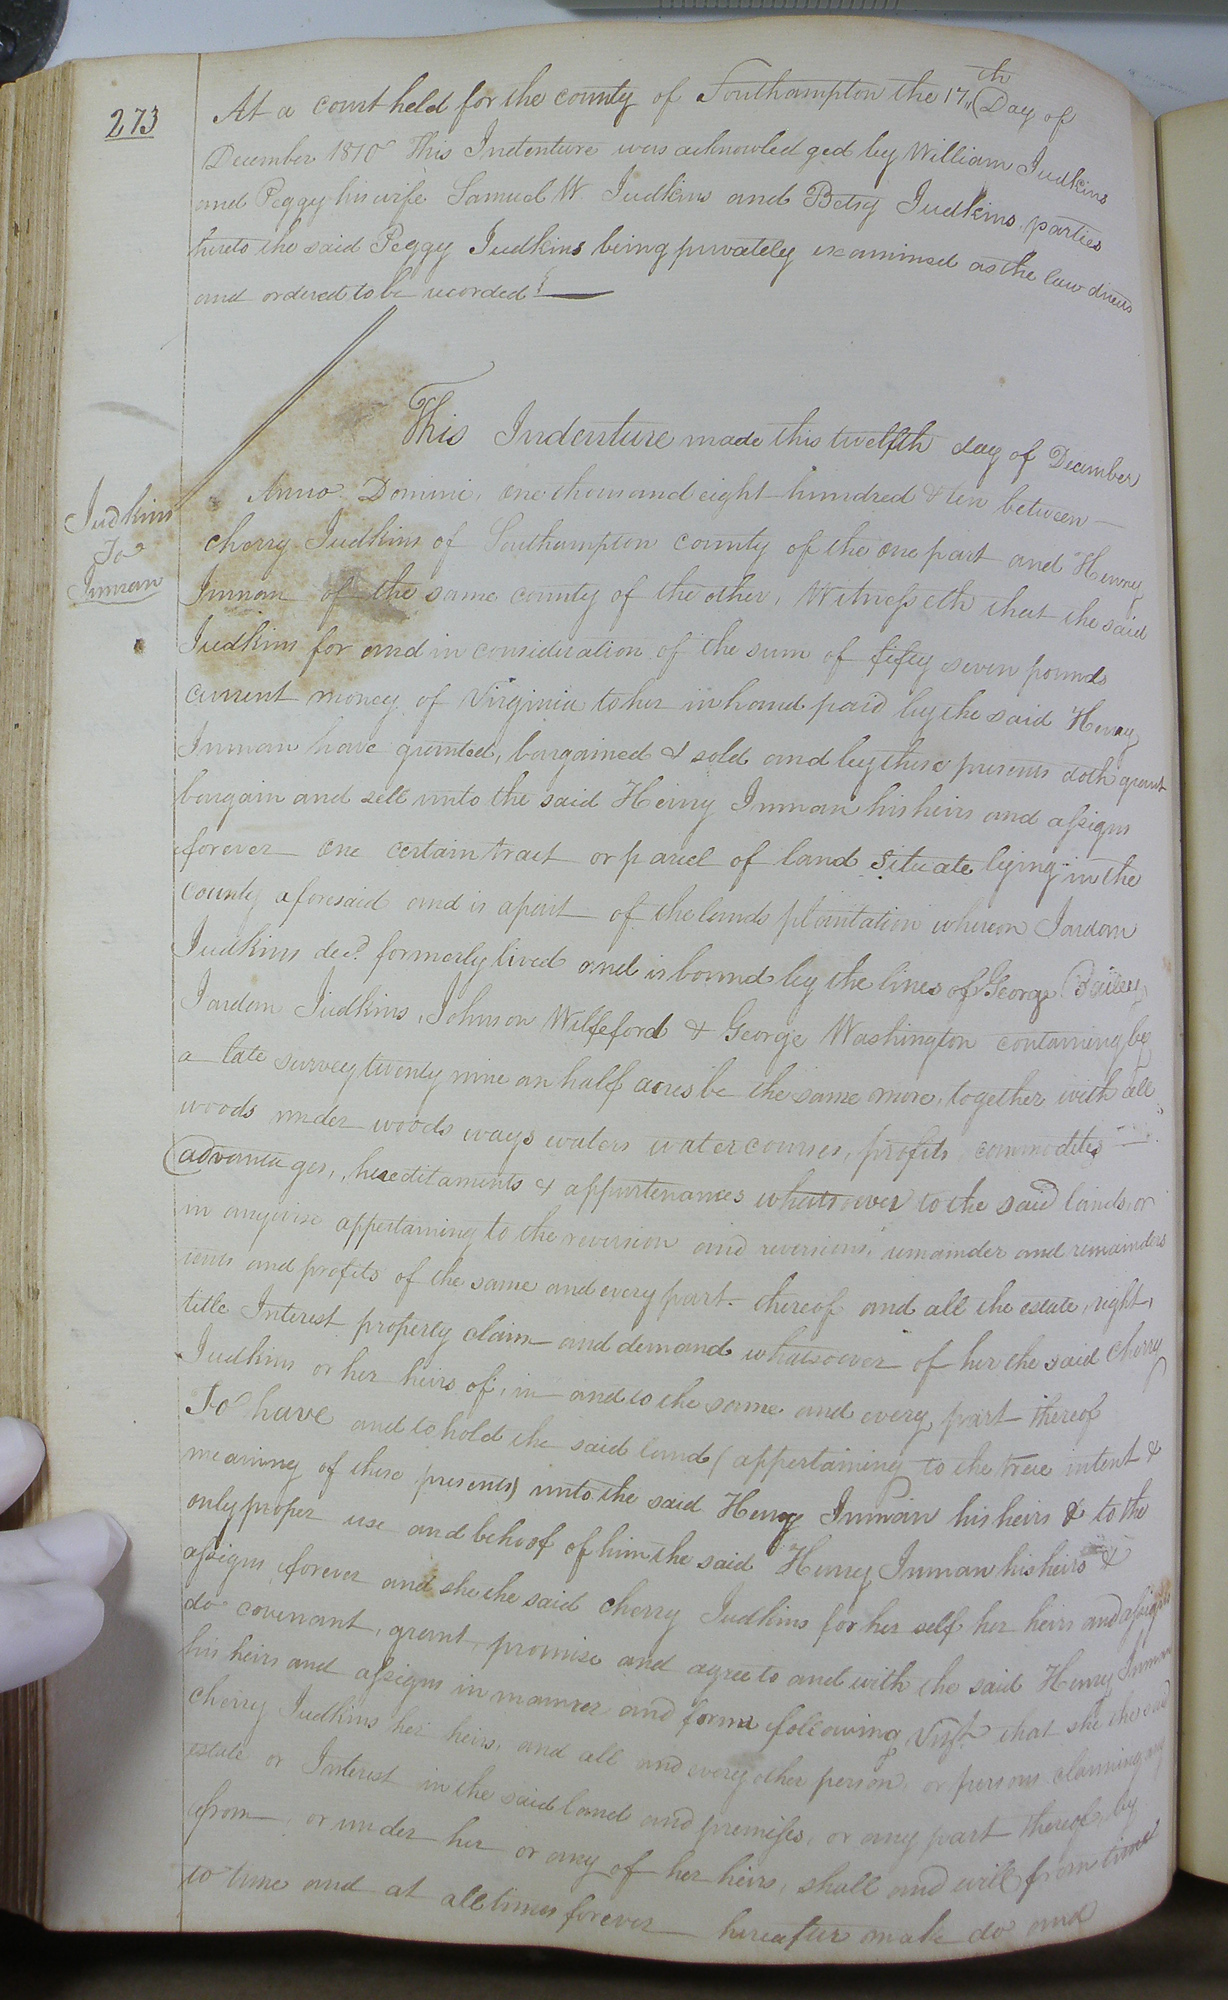 273
At a court held for the county of Southampton the 17th Day of
December 1810 This Indenture was acknowledged by William Judkins
and Peggy his wife Samuel W. Judkins and Betsy Judkins parties
hereto the said Peggy Judkins being privately examined as the law directs
and ordered to be recorded
Judkins
To
Inman
This Indenture made this twelfth day of December
Anno Domini, one thousand eight hundred & ten between
Cherry Judkins of Southampton county of the one part and Henry
Inman of the same county of the other, Witnesseth that the said
Judkins for and in consideration of the sum of fifty seven pounds
current money of Virginia to her in hand paid by the said Henry
Inman have granted, bargained & sold and by these presents doth grant
bargain and sell unto the said Henry Inman his heirs and assigns
forever one certain tract or parcel of land situate lying in the
county aforesaid and is apart of the lands plantation whereon Jordom
Judkins decd. formerly lived and is bound by the lines of George
Jordom Judkins, Johnson Wilfeford & George Washington containing by
a late survey twenty nine an half acres be the same more, together with all
woods under woods ways waters watercourses, profits, commodities
advantages, hereditaments & appurtenances whatsoever to the said lands, or
in anywise appertaining to the reversion and reversions, remainder and remainders
rents and profits of the same and every part thereof and all the estate, right,
title Interest property claim and demand whatsoever of her the said Cherry
Judkins or her heirs of, in and to the same and every part thereof
To have and to hold the said land (appertaining to the true intent &
meaning of these presents) unto the said Henry Inman his heirs & to the
only proper use and behoof of him the said Henry Inman his heirs &
assigns forever and she the said Cherry Judkins for her self her heirs and assigns
do covenant, grant, promise and agree to and with the said Henry Inman
his heirs and assigns in manner and form following Vizt. that she the said
Cherry Judkins her heirs, and all and every other person, or persons claiming any
estate or Interest in the said land and premises, or any part thereof, by
from or under her or any of her heirs, shall and will from time
to time and at all times forever hereafter make do and